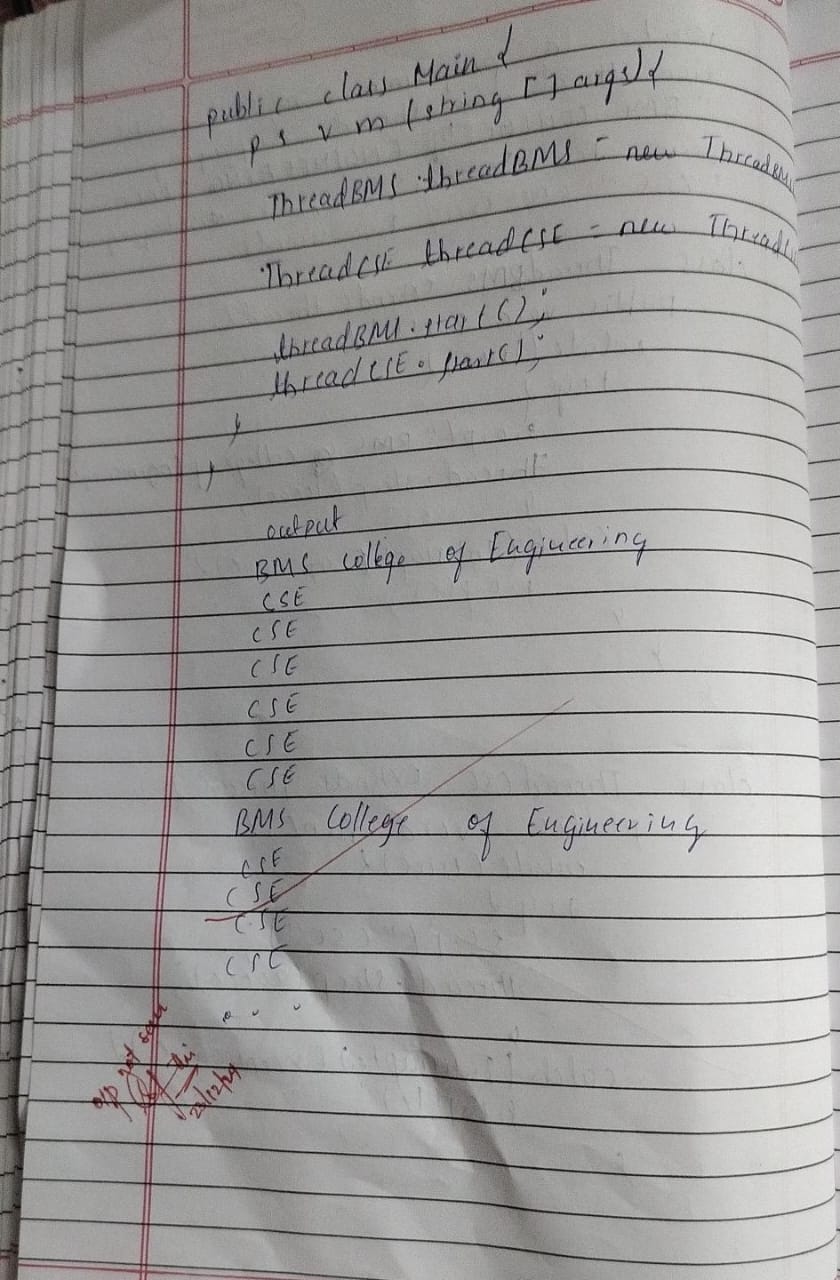 public class Main {
p s v m (string [] args) {
ThreadBMS threadBMS = new ThreadBMS
ThreadCSE threadCSE = new Thread
threadBMS.start();
threadCSE.start();
}
}
output
BMS College of Engineering
CSE
CSE
CSE
CSE
CSE
CSE
BMS College of Engineering
CSE
CSE
CSE
CSE
. . .
o/p not seen
23/12/24